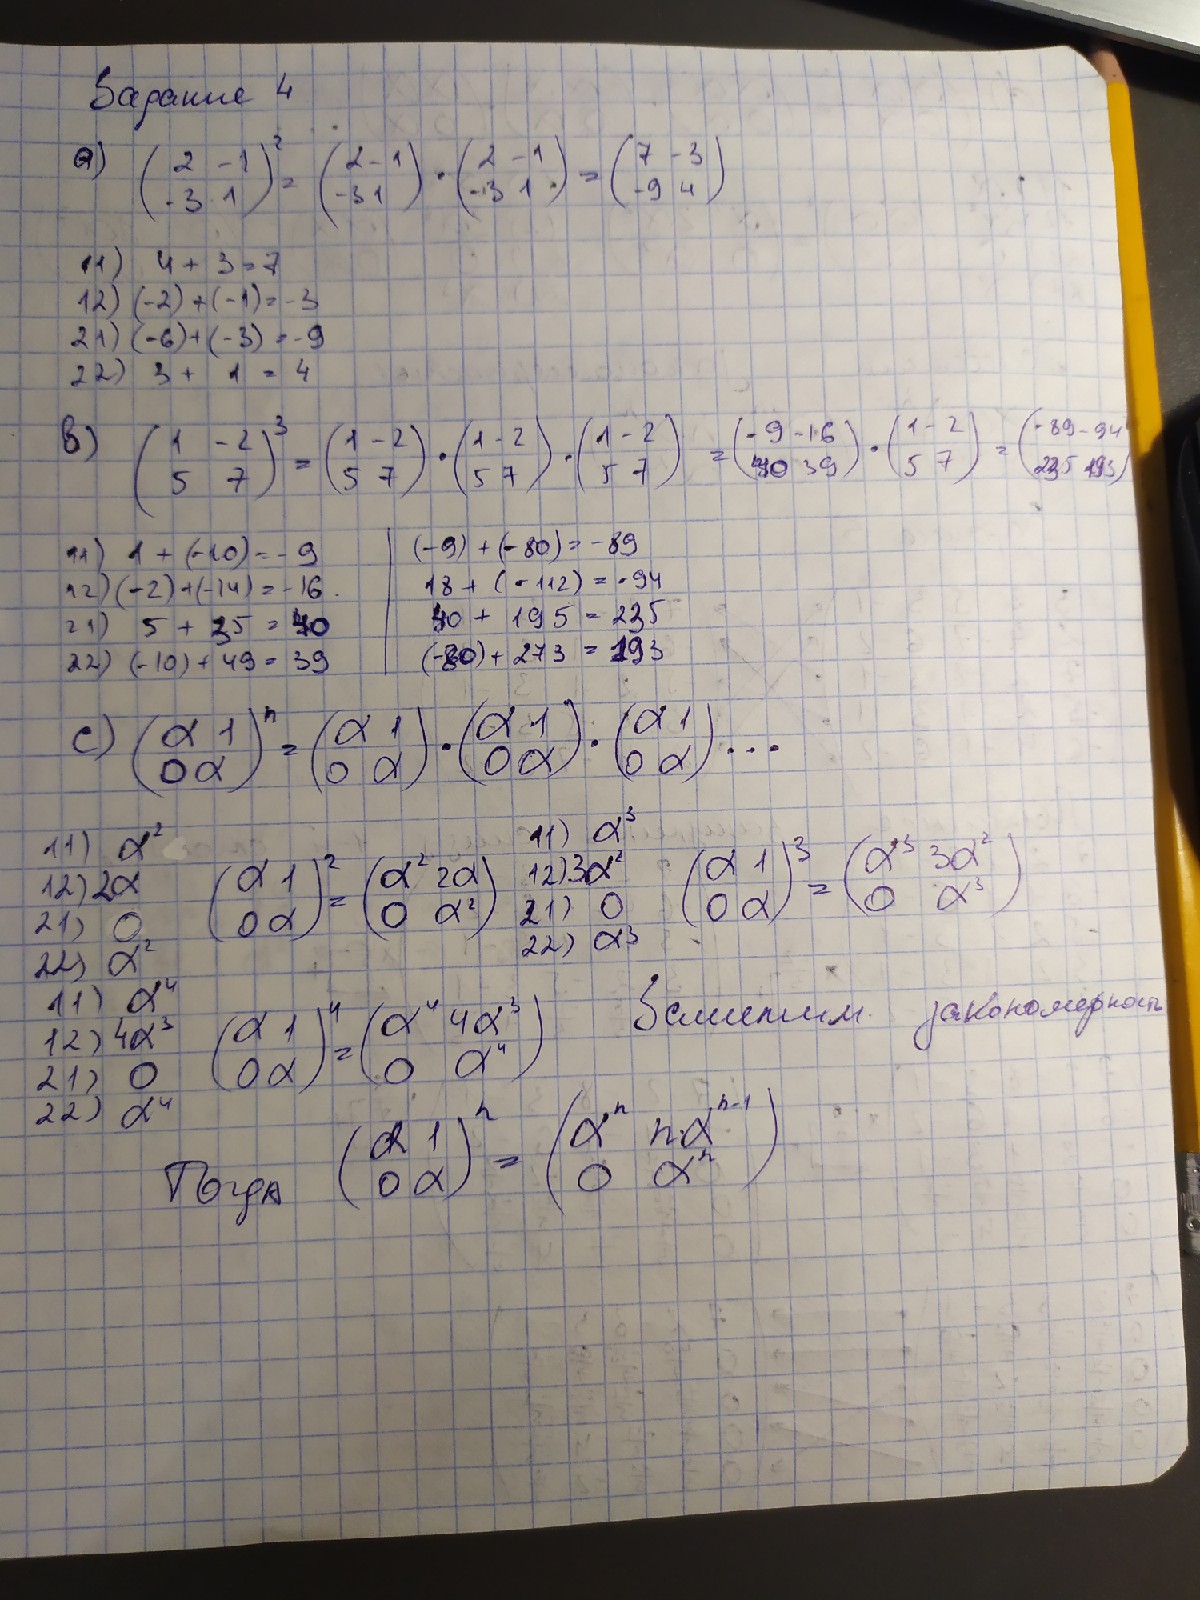 Задание 4
a) (2 -1 / -3 1)² = (2 -1 / -3 1) · (2 -1 / -3 1) = (7 -3 / -9 4)
11) 4 + 3 = 7
12) (-2) + (-1) = -3
21) (-6) + (-3) = -9
22) 3 + 1 = 4
b) (1 -2 / 5 7)³ = (1 -2 / 5 7) · (1 -2 / 5 7) · (1 -2 / 5 7) = (-9 -16 / 40 39) · (1 -2 / 5 7) = (-89 -94 / 235 193)
11) 1 + (-10) = -9 | (-9) + (-80) = -89
12) (-2) + (-14) = -16. | 18 + (-112) = -94
21) 5 + 35 = 40 | 40 + 195 = 235
22) (-10) + 49 = 39 | (-80) + 273 = 193
c) (α 1 / 0 α)ⁿ = (α 1 / 0 α) · (α 1 / 0 α) · (α 1 / 0 α) ...
11) α²
12) 2α
21) 0
22) α²
(α 1 / 0 α)² = (α² 2α / 0 α²)
11) α³
12) 3α²
21) 0
22) α³
(α 1 / 0 α)³ = (α³ 3α² / 0 α³)
11) α⁴
12) 4α³
21) 0
22) α⁴
(α 1 / 0 α)⁴ = (α⁴ 4α³ / 0 α⁴)
Заметим закономерность
Тогда (α 1 / 0 α)ⁿ = (αⁿ n·αⁿ⁻¹ / 0 αⁿ)